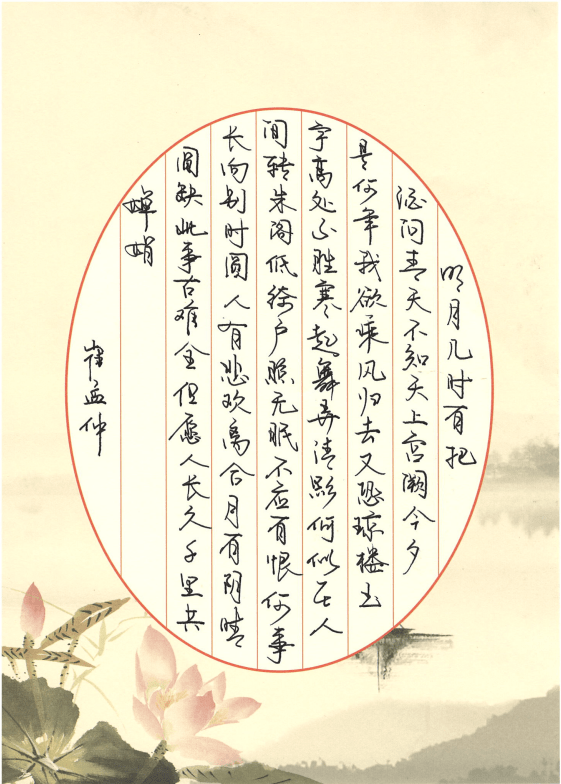 明月几时有把
酒问青天不知天上宫阙今夕
是何年我欲乘风归去又恐琼楼玉
宇高处不胜寒起舞弄清影何似在人
间转朱阁低绮户照无眠不应有恨何事
长向别时圆人有悲欢离合月有阴晴
圆缺此事古难全但愿人长久千里共
婵娟
崔孟仲